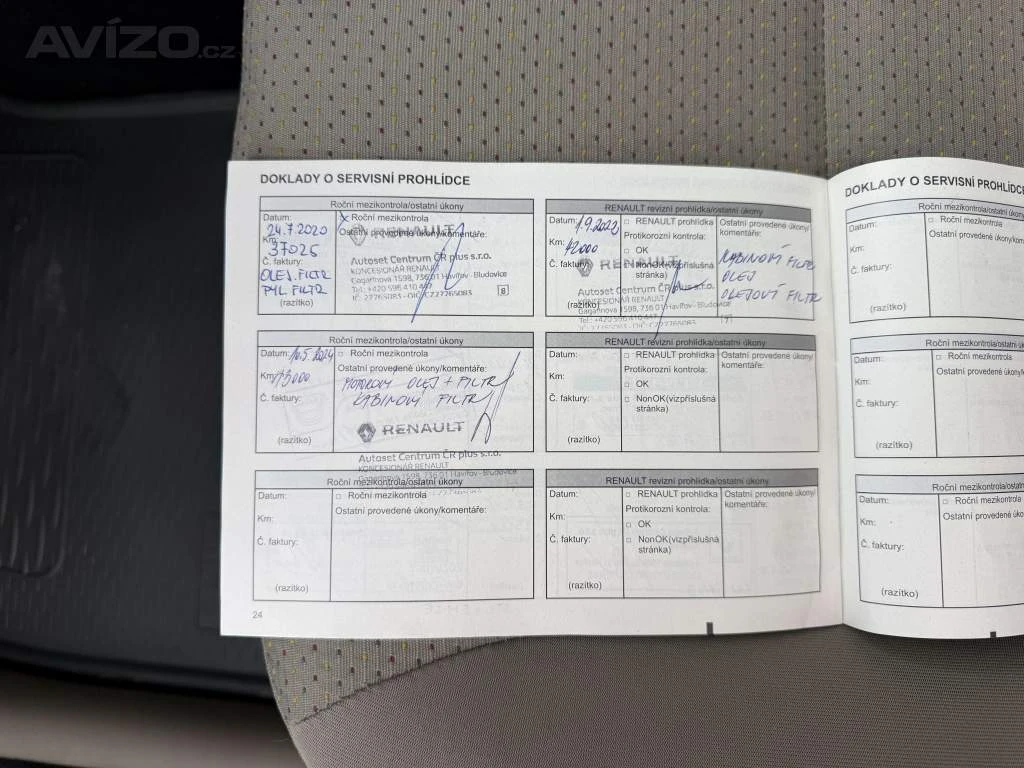 AVÍZO.cz
DOKLADY O SERVISNÍ PROHLÍDCE
Roční mezikontrola/ostatní úkony
Datum: 24.7.2020
Km: 37025
Č. faktury:
OLEJ. FILTR
PYL. FILTR
(razítko)
x Roční mezikontrola
Ostatní provedené úkony/komentáře:
RENAULT
Autoset Centrum ČR plus s.r.o.
KONCESIONÁŘ RENAULT
Gagarinova 1598, 736 01 Havířov - Bludovice
Tel.: +420 596 410 447
IČ: 27765083 - DIČ: CZ27765083
8
RENAULT revizní prohlídka/ostatní úkony
Datum:
Km:
Č. faktury:
(razítko)
□ RENAULT prohlídka
Protikorozní kontrola:
□ OK
□ NonOK(viz příslušná
stránka)
Ostatní provedené úkony/
komentáře:
KABINOVÝ FILTR
OLEJ
OLEJOVÝ FILTR
RENAULT
Autoset Centrum ČR plus s.r.o.
KONCESIONÁŘ RENAULT
Gagarinova 1598, 736 01 Havířov - Bludovice
Tel.: +420 596 410 447
Roční mezikontrola/ostatní úkony
Datum: 10.5.2024
Km:
Č. faktury:
(razítko)
□ Roční mezikontrola
Ostatní provedené úkony/komentáře:
MOTOROVÝ OLEJ + FILTR
KABINOVÝ FILTR
RENAULT
Autoset Centrum ČR plus s.r.o.
KONCESIONÁŘ RENAULT
Gagarinova 1598, 736 01 Havířov - Bludovice
RENAULT revizní prohlídka/ostatní úkony
Datum:
Km:
Č. faktury:
(razítko)
□ RENAULT prohlídka
Protikorozní kontrola:
□ OK
□ NonOK(viz příslušná
stránka)
Ostatní provedené úkony/
komentáře:
Roční mezikontrola/ostatní úkony
Datum:
Km:
Č. faktury:
(razítko)
□ Roční mezikontrola
Ostatní provedené úkony/komentáře:
RENAULT revizní prohlídka/ostatní úkony
Datum:
Km:
Č. faktury:
(razítko)
□ RENAULT prohlídka
Protikorozní kontrola:
□ OK
□ NonOK(viz příslušná
stránka)
Ostatní provedené úkony/
komentáře:
24
DOKLADY O SERVISNÍ PROHLÍDCE
Roční mezikontrola/ostatní
Datum:
Km:
Č. faktury:
(razítko)
□ Roční mezikontrola
Ostatní provedené úkony/kom
Roční mezikontrola/ostatní
Datum:
Km:
Č. faktury:
(razítko)
□ Roční mezikontrola
Ostatní provedené úkony/k
Roční mezikontrola/ostatní
Datum:
Km:
Č. faktury:
(razítko)
□ Roční mezikontrola
Ostatní provedené úko